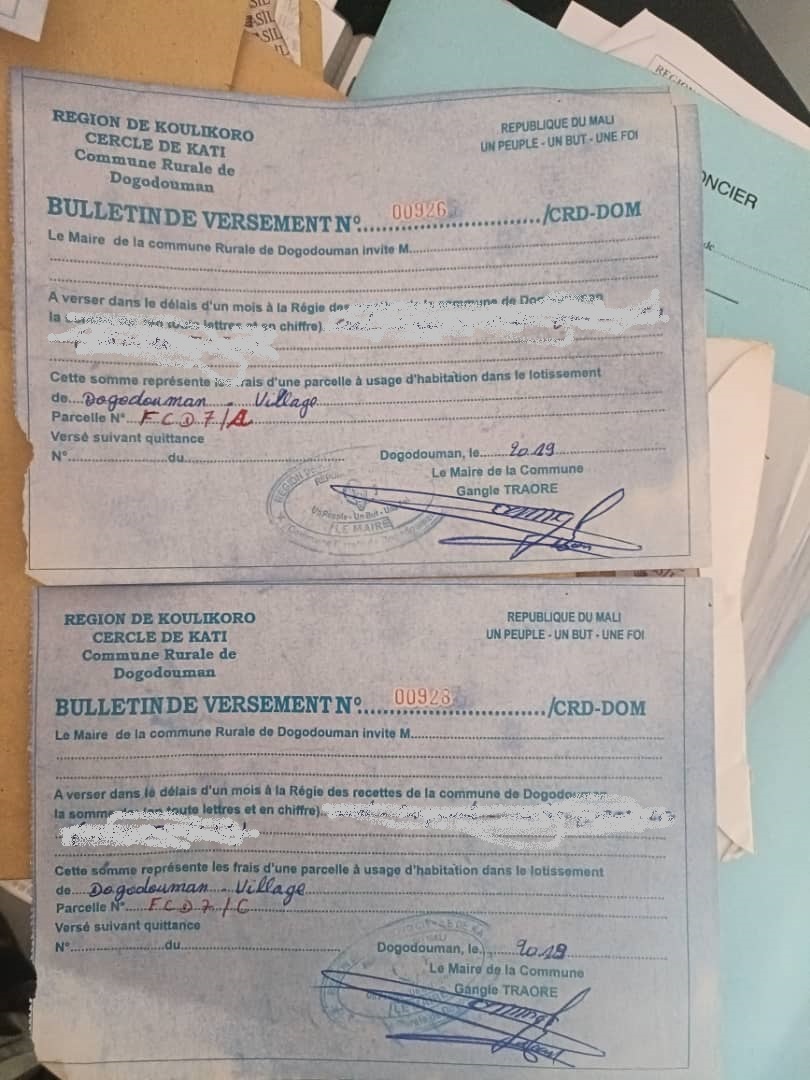 ASIL
REGION
ONCIER
de
REGION DE KOULIKORO
CERCLE DE KATI
Commune Rurale de
Dogodouman
REPUBLIQUE DU MALI
UN PEUPLE - UN BUT - UNE FOI
BULLETIN DE VERSEMENT N°. 00926 /CRD-DOM
Le Maire de la commune Rurale de Dogodouman invite M.
A verser dans le délais d'un mois à la Régie des commune de
la toute lettres et en chiffre).
Cette somme représente les frais d'une parcelle à usage d'habitation dans le lotissement
de Dogodouman - Village
Parcelle N° FCD7/A
Versé suivant quittance
N° du
Dogodouman, le 2019
Le Maire de la Commune
Gangle TRAORE
Un Peuple - Un But - Une Foi
LE MAIRE
REGION DE KOULIKORO
CERCLE DE KATI
Commune Rurale de
Dogodouman
REPUBLIQUE DU MALI
UN PEUPLE - UN BUT - UNE FOI
BULLETIN DE VERSEMENT N°. 00928 /CRD-DOM
Le Maire de la commune Rurale de Dogodouman invite M.
A verser dans le délais d'un mois à la Régie des recettes de la commune de Dogodouman
la somme toute lettres et en chiffre).
Cette somme représente les frais d'une parcelle à usage d'habitation dans le lotissement
de Dogodouman - Village
Parcelle N° FCD7/C
Versé suivant quittance
N° du
Dogodouman, le 2019
Le Maire de la Commune
Gangle TRAORE